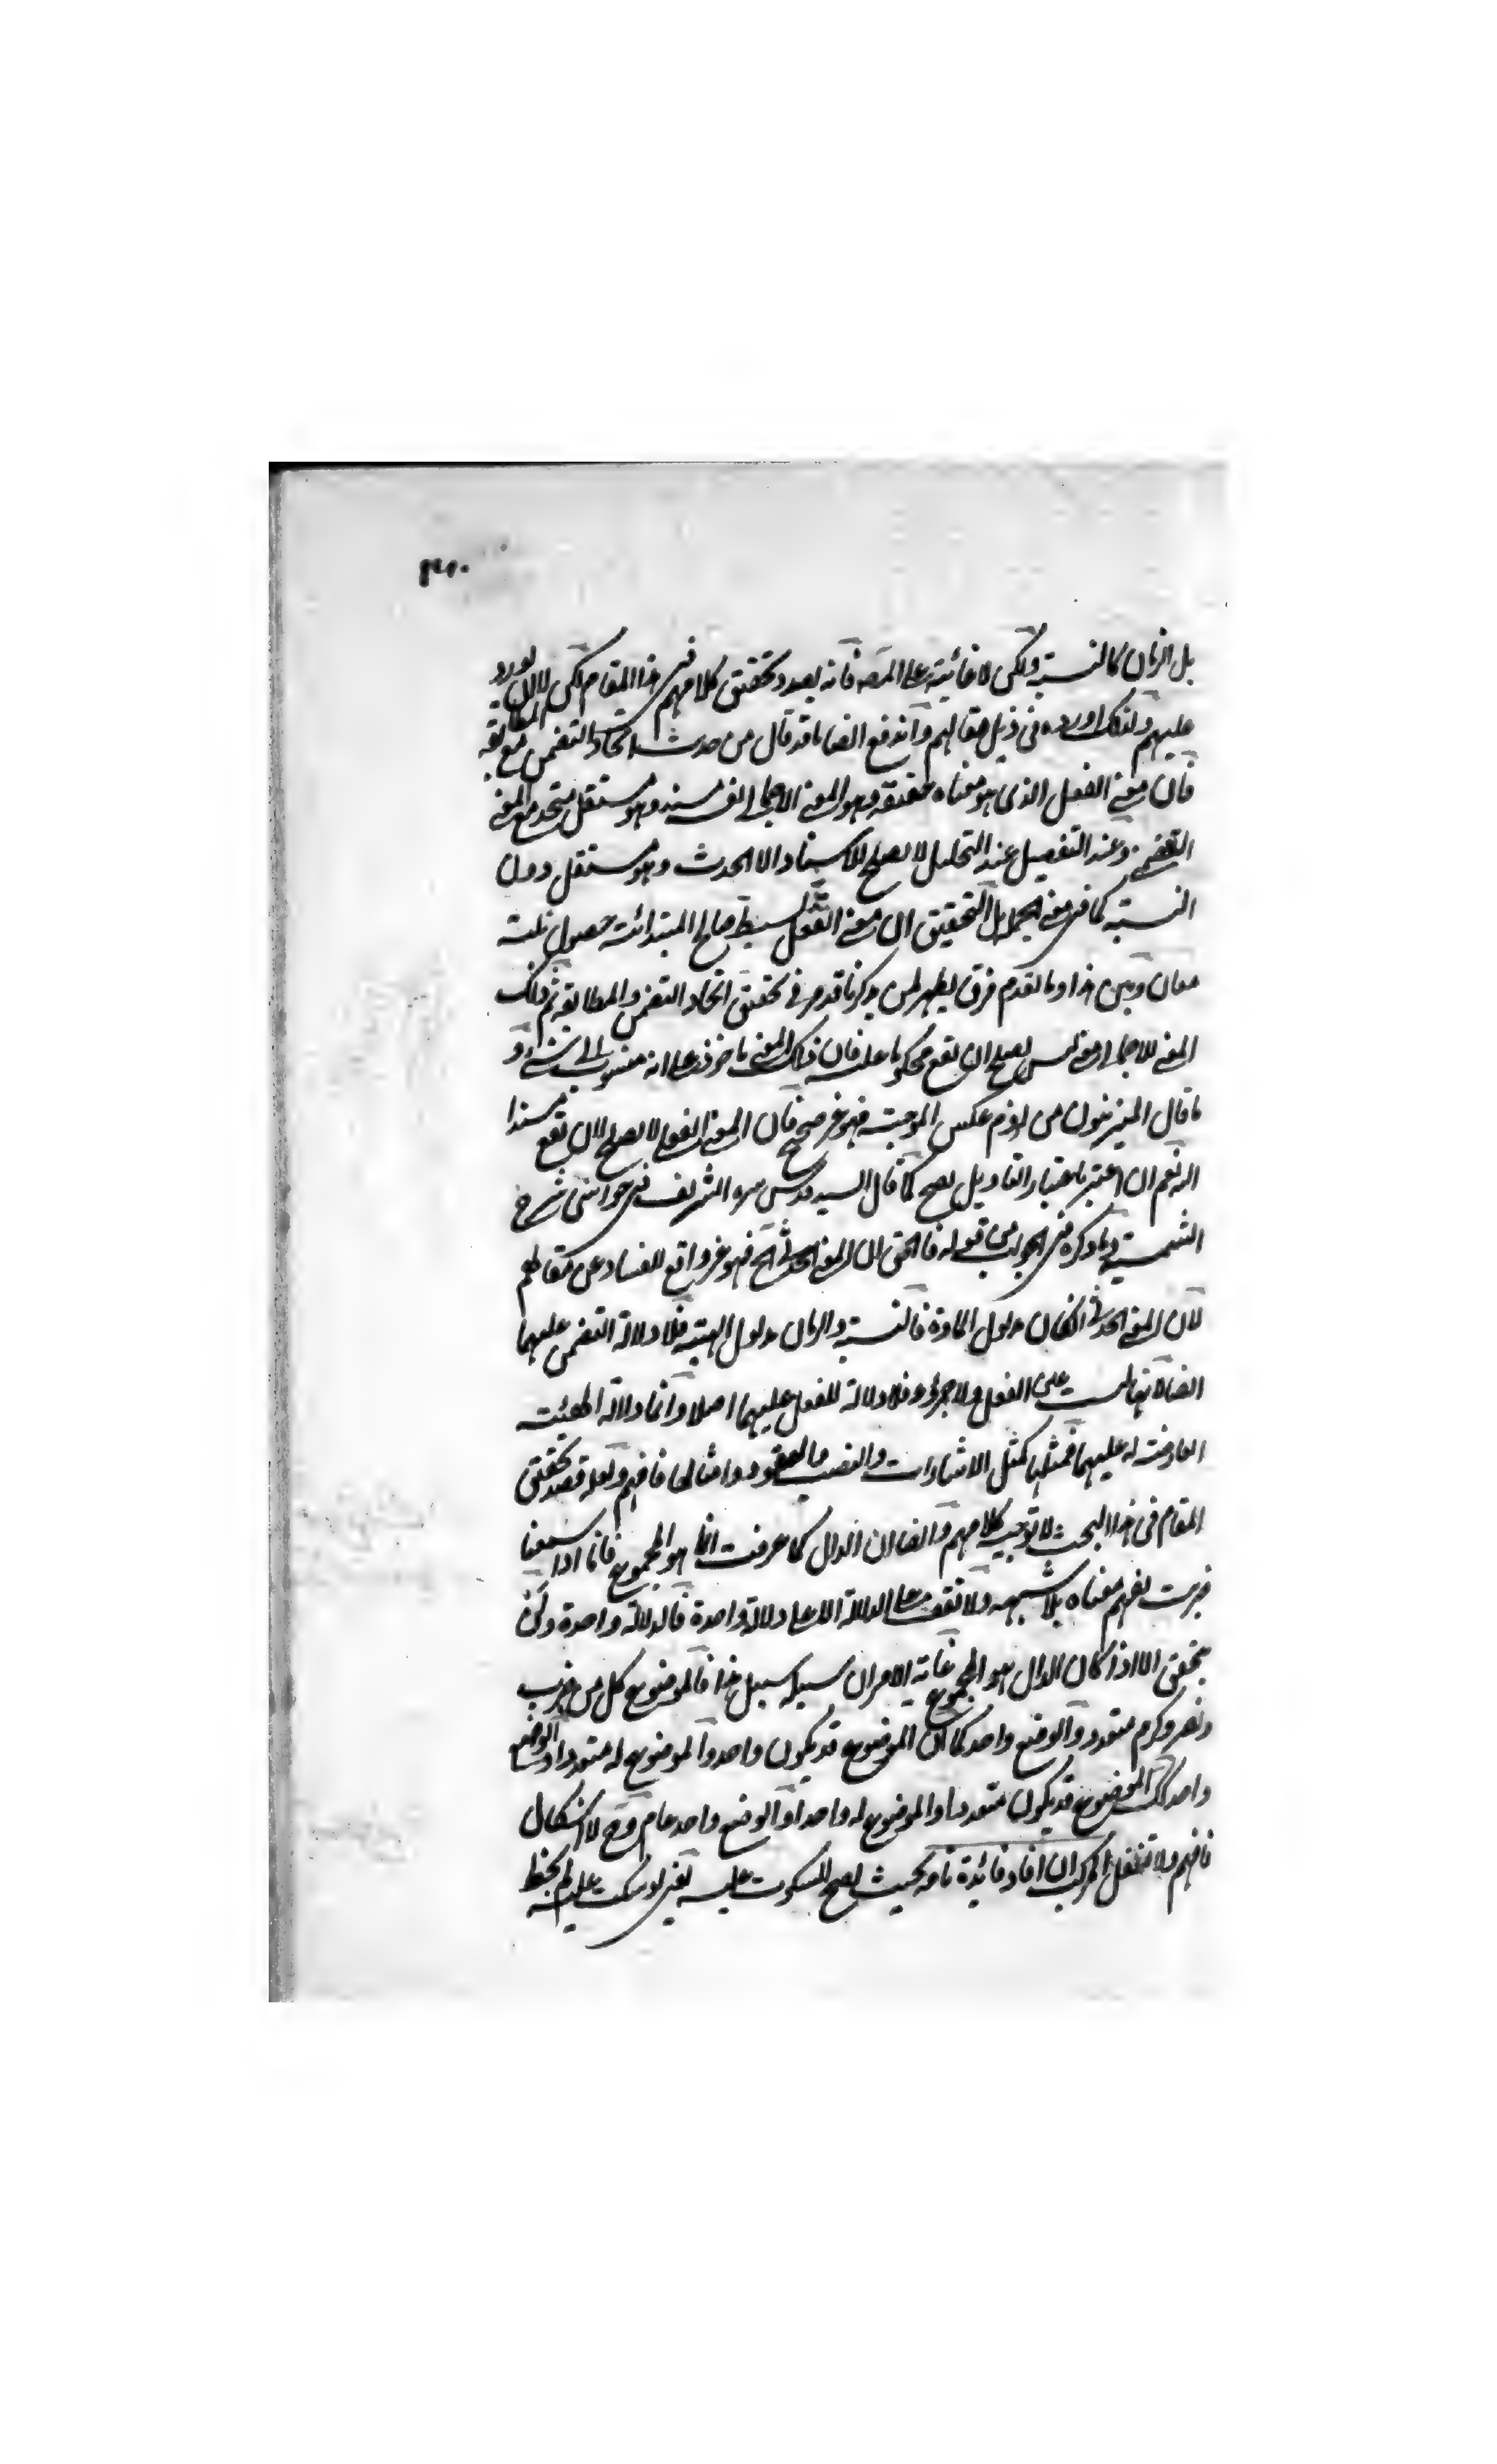 ٣٠
بل الزمان كالنسبة ولكن لا خائبة على المص فانه بصدد تحقيق كلامهم فى هذا المقام لكن لا لان يورد
عليهم ولذلك اورده فى ذيل مقالهم واندفع ايضا ما قد قال من حديث اتحاد التضمن مع المطابقة
فان معنى الفعل الذى هو معناه حقيقة وهو المعنى الاجمالى مسند وهو مستقل متحد مع المعنى
التضمنى وعند التفصيل عند التحليل لا يصلح للاسناد الا الحدث وهو مستقل دون
النسبة كما فى معنى الجمل بل التحقيق ان معنى الفعل بسيط صالح حصول ثلثة
معان وبين هذا وما تقدم فرق يظهر لمن يذكر ما قد مر فى تحقيق اتحاد التضمن والمطابقة ثم ذلك
المعنى الاجمالى يصلح ان يقع محكوما عليه فان ذلك المعنى ماخوذ على انه منسوب الى شىء و
ما قال الميزانيون من لزوم عكس الموجبة فهو غير صحيح فان المعنى الفعلى لا يصلح لان يقع مسندا
اليه نعم ان اعتبر باعتبار التاويل يصح كما قال السيد قدس سره الشريف فى حواشى شرح
الشمسية وما ذكره فى الجواب من قوله فالحق ان المعنى الحدثى الخ فهو غير واقع للفساد عن مقالهم
لان المعنى الحدثى ان كان مدلول المادة فالنسبة والزمان مدلول الهيئة فلا دلالة التضمن عليهما
ايضا لانها ليست عين الفعل ولا جزءه فلا دلالة للفعل عليهما اصلا وانما دلالة الهيئة
العارضة له عليهما فمثلها كمثل الاشارات والنصب والعقود وامثالها فافهم ولعله قصد تحقيق
المقام فى هذا البحث لا توجيه كلامهم وايضا ان الدال كما عرفت انما هو المجموع فانا اذا سمعنا
ضربت نفهم معناه بلا شبهة ولا نقف على الدلالة الا على دلالة واحدة فالدلالة واحدة ولن
يتحقق الا اذا كان الدال هو المجموع غاية الامر ان سبيله سبيل هذا فالموضوع كل من ضرب
ونصر وكرم متعدد والوضع واحد كما ان الموضوع قد يكون واحد والموضوع له متعددا والوضع
واحد كك الموضوع قد يكون متعددا والموضوع له واحدا والوضع واحد عام وح لا اشكال
فافهم ولا تغفل المركب ان افاد فائدة تامة بحيث يصح السكوت عليه يعنى لو سكت عليه لم يخط